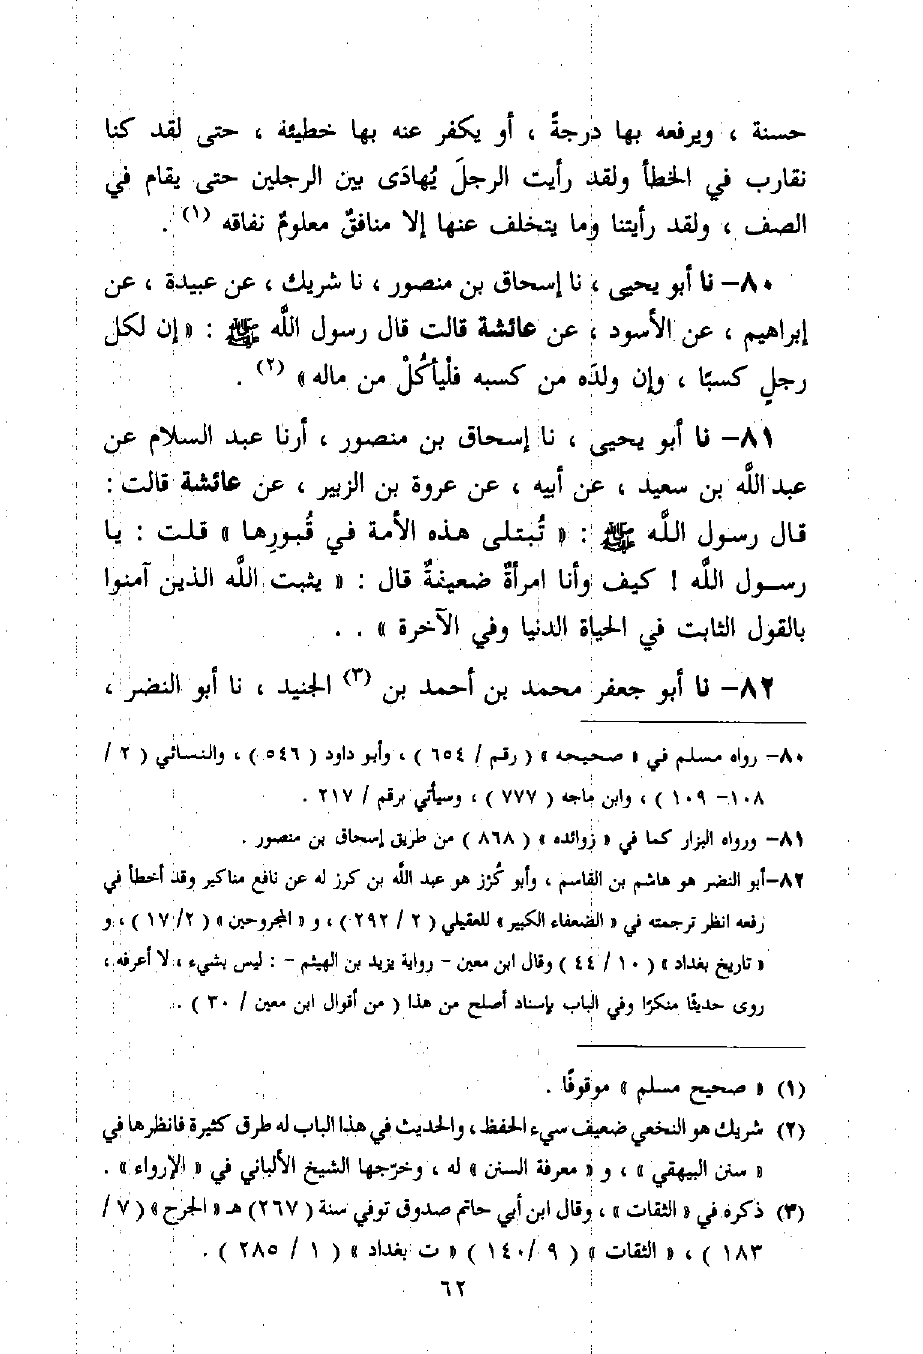 حسنة ، ويرفعه بها درجةً ، أو يكفر عنه بها خطيئة ، حتى لقد كنا
نقارب في الخطأ ولقد رأيت الرجلَ يُهادَى بين الرجلين حتى يقام في
الصف ، ولقد رأيتنا وما يتخلف عنها إلا منافقٌ معلومٌ نفاقه (١) .
٨٠– نا أبو يحيى ، نا إسحاق بن منصور ، نا شريك ، عن عبيدة ، عن
إبراهيم ، عن الأسود ، عن عائشة قالت قال رسول اللَّه ﷺ : « إن لكل
رجلٍ كسبًا ، وإن ولدَه من كسبه فلْيأكُلْ من ماله » (٢) .
٨١– نا أبو يحيى ، نا إسحاق بن منصور ، أرنا عبد السلام عن
عبد اللَّه بن سعيد ، عن أبيه ، عن عروة بن الزبير ، عن عائشة قالت :
قال رسول اللَّه ﷺ : « تُبتلى هذه الأمة في قُبورِها » قلت : يا
رسول اللَّه ! كيف وأنا امرأةٌ ضعيفةٌ قال : « يثبت اللَّه الذين آمنوا
بالقول الثابت في الحياة الدنيا وفي الآخرة » . .
٨٢– نا أبو جعفر محمد بن أحمد بن (٣) الجنيد ، نا أبو النضر ،
٨٠– رواه مسلم في « صحيحه » ( رقم / ٦٥٤ ) ، وأبو داود ( ٥٤٦ ) ، والنسائي ( ٢ /
١٠٨– ١٠٩ ) ، وابن ماجه ( ٧٧٧ ) ، وسيأتي برقم / ٢١٧ .
٨١– ورواه البزار كما في « زوائده » ( ٨٦٨ ) من طريق إسحاق بن منصور .
٨٢–أبو النضر هو هاشم بن القاسم ، وأبو كُرْز هو عبد اللَّه بن كرز له عن نافع مناكير وقد أخطأ في
رفعه انظر ترجمته في « الضعفاء الكبير » للعقيلي ( ٢ / ٢٩٢ ) ، و « المجروحين » ( ٢/ ١٧ ) ، و
« تاريخ بغداد » ( ١٠ / ٤٤ ) وقال ابن معين – رواية يزيد بن الهيثم – : ليس بشيء ، لا أعرفه ،
روى حديثًا منكرًا وفي الباب بإسناد أصلح من هذا ( من أقوال ابن معين / ٣٠ ) .
(١) « صحيح مسلم » موقوفًا .
(٢) شريك هو النخعي ضعيف سيء الحفظ ، والحديث في هذا الباب له طرق كثيرة فانظرها في
« سنن البيهقي » ، و « معرفة السنن » له ، وخرّجها الشيخ الألباني في « الإرواء » .
(٣) ذكره في « الثقات » ، وقال ابن أبي حاتم صدوق توفي سنة ( ٢٦٧) هـ « الجرح » ( ٧ /
١٨٣ ) ، « الثقات » ( ٩ / ١٤٠ ) « ت بغداد » ( ١ / ٢٨٥ ) .
٦٢